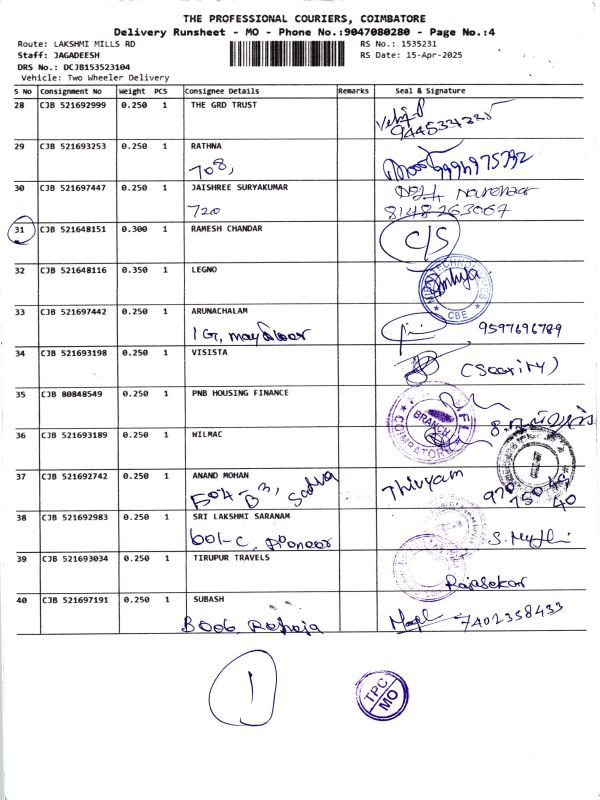 THE PROFESSIONAL COURIERS, COIMBATORE
Delivery Runsheet - MO - Phone No.:9047080280 - Page No.:4
Route: LAKSHMI MILLS RD RS No.: 1535231
Staff: JAGADEESH RS Date: 15-Apr-2025
DRS No.: DCJB153523104
Vehicle: Two Wheeler Delivery
S No Consignment No Weight PCS Consignee Details Remarks Seal & Signature
28 CJB 521692999 0.250 1 THE GRD TRUST
29 CJB 521693253 0.250 1 RATHNA
708,
30 CJB 521697447 0.250 1 JAISHREE SURYAKUMAR
720 8148263067
31 CJB 521648151 0.300 1 RAMESH CHANDAR C/S
32 CJB 521648116 0.350 1 LEGNO
CBE
33 CJB 521697442 0.250 1 ARUNACHALAM
1G, 9597696789
34 CJB 521693198 0.250 1 VISISTA
35 CJB 80848549 0.250 1 PNB HOUSING FINANCE
BRANCH
COIMBATORE
36 CJB 521693189 0.250 1 WILMAC
37 CJB 521692742 0.250 1 ANAND MOHAN Thivyam
F04 B3,
38 CJB 521692983 0.250 1 SRI LAKSHMI SARANAM
601-C,
39 CJB 521693034 0.250 1 TIRUPUR TRAVELS
Rajasekar
40 CJB 521697191 0.250 1 SUBASH 7402358433
B006,
1
TPC
MO